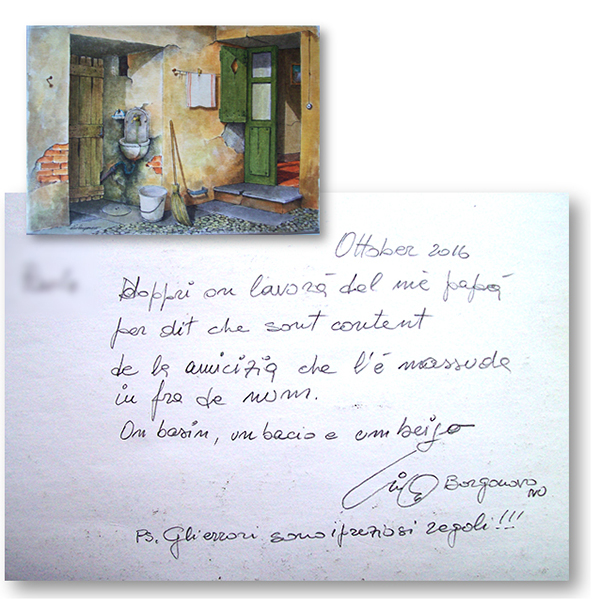 Ottober 2016
Doppri on lavorà del mè papà
per dit che sont content
de la amicizia che l'è nassuda
in fra de num.
On basin, un bacio e um beijo
Borgonovo
Ps. Gli errori sono i preziosi regali!!!